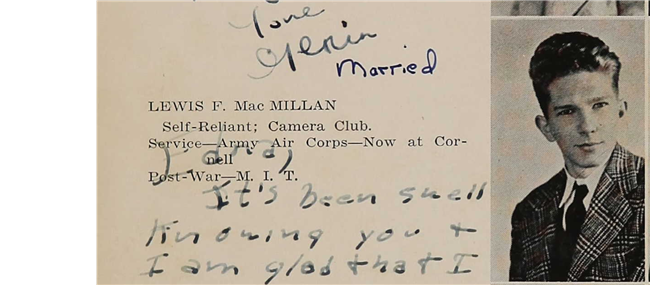 Love
Married
LEWIS F. Mac MILLAN
Self-Reliant; Camera Club.
Service—Army Air Corps—Now at Cor-
nell
Post-War—M. I. T.
It's been swell
Knowing you +
I am glad that I